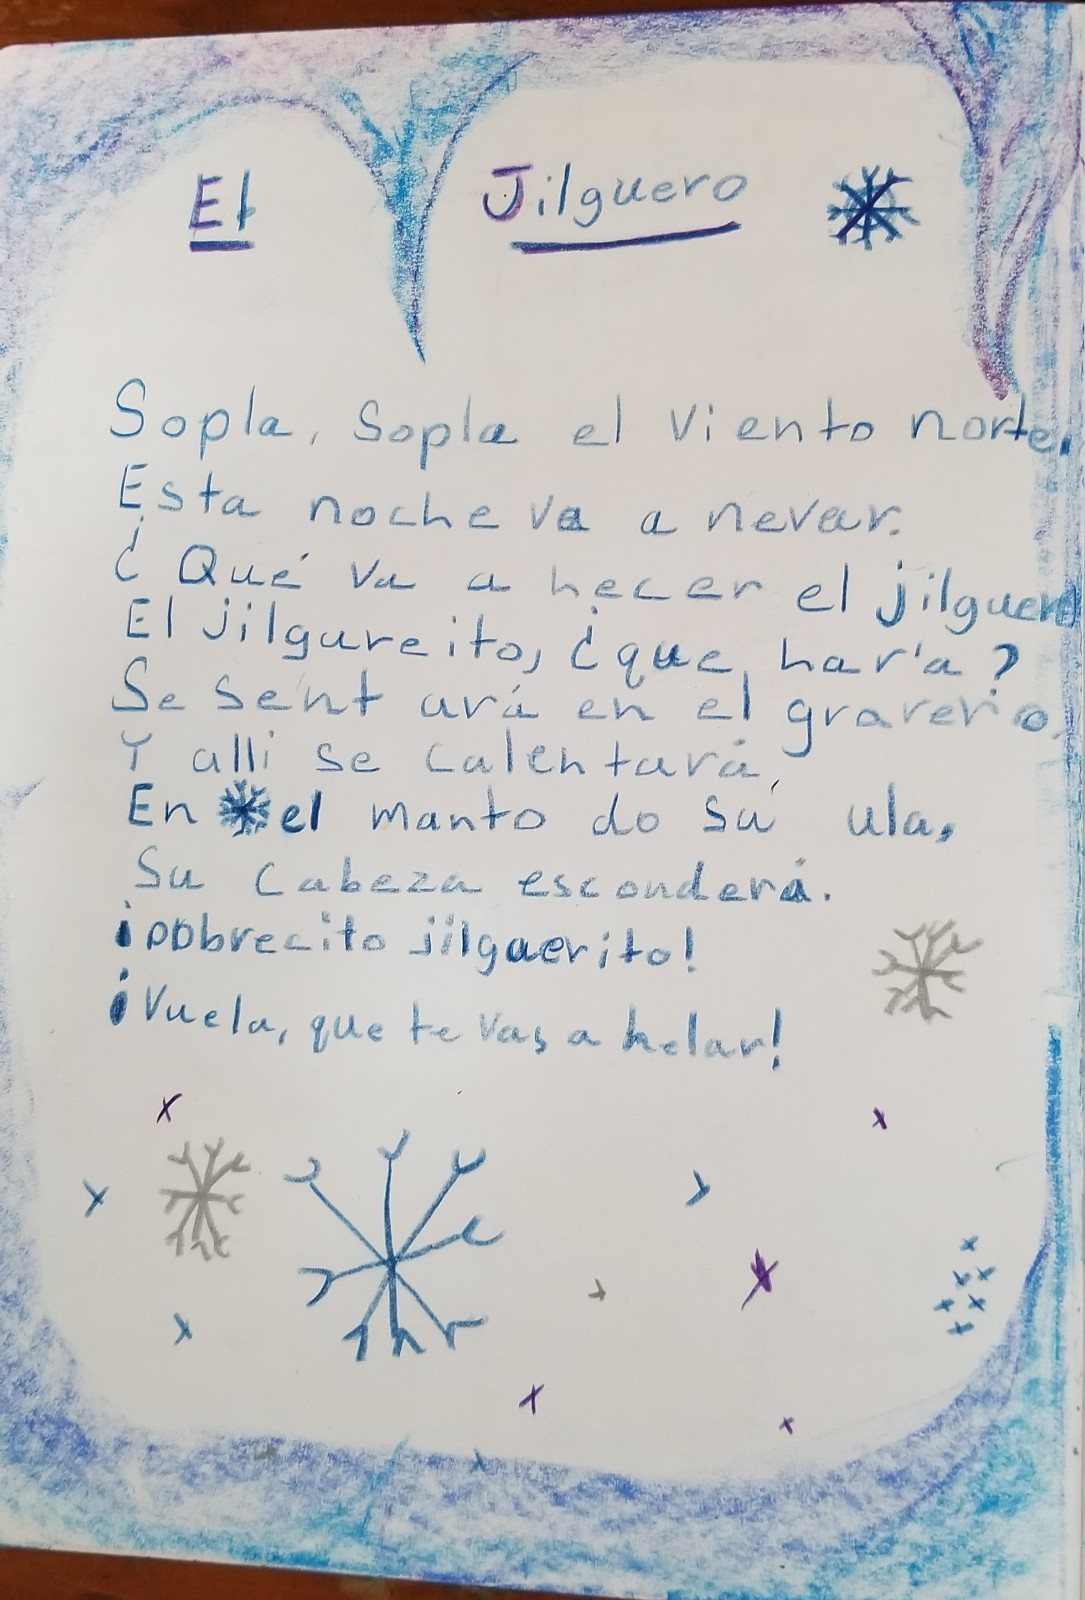 El Jilguero
Sopla, Sopla el viento norte.
Esta noche va a nevar.
¿Qué va a hecer el jilguero
El jilgureito, ¿que, har'a?
Se sentará en el graverio,
Y alli se calentará,
En el manto do su ula,
Su Cabeza esconderá.
¡pobrecito jilguerito!
¡Vuela, que te vas a helar!